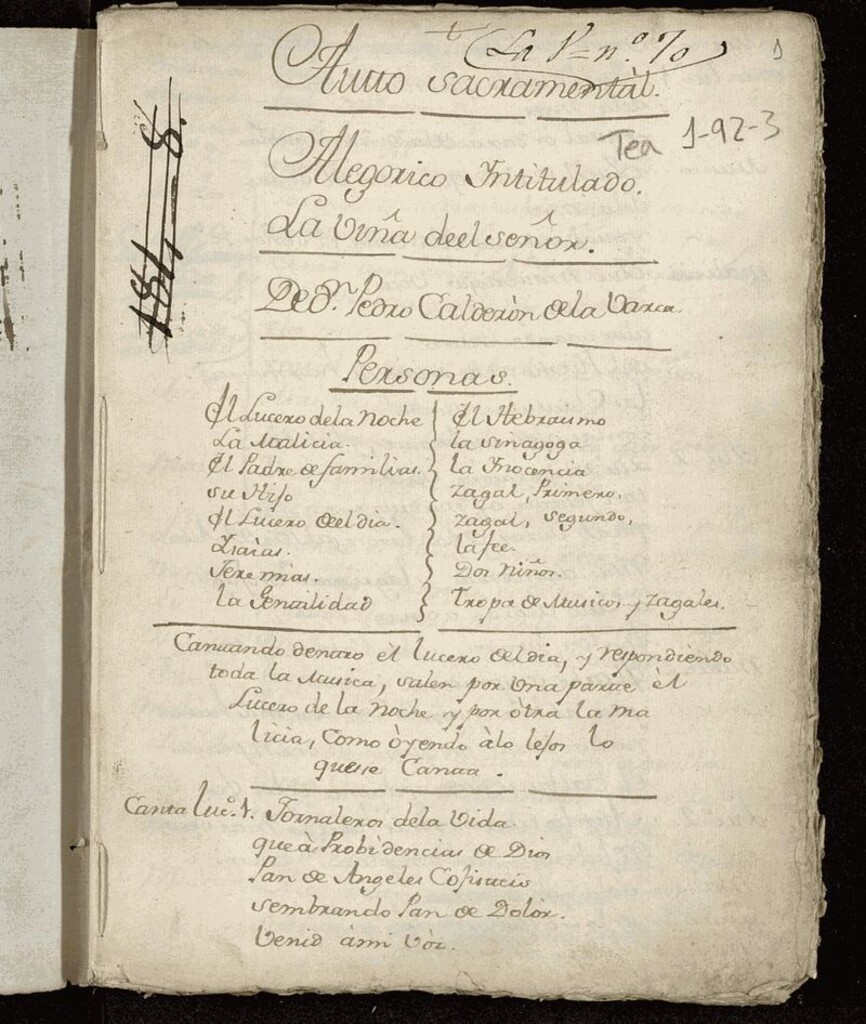 t (La P=nº 70
1
Auto sacramentàl.
Tea 1-92-3
Alegorico Intitulado.
La viña deel señor.
De Dn. Pedro Calderòn dela Barca.
Personas.
El Lucero dela noche
La Malicia.
El Padre de familias.
su Hijo
El Lucero deel dia.
Isaias.
Jeremias.
la Gentilidad
El Hebraismo
la sinagoga
la Inocencia
zagal, Primero,
zagal, segundo,
la fee.
Dos niños.
Tropa de Musicos y zagales.
Cantando dentro èl lucero deldia, y respondiendo
toda la Musica, salen por una parte èl
Lucero de la noche y por òtra la ma
licia, como òyendo àlo lejos lo
quese Canta.
Canta luc.º 1. Jornaleros dela Vida
que à Probidencias de Dios
Pan de Angeles Cojireis
sembrando Pan de Dolòr.
Venid àmi Vòz.